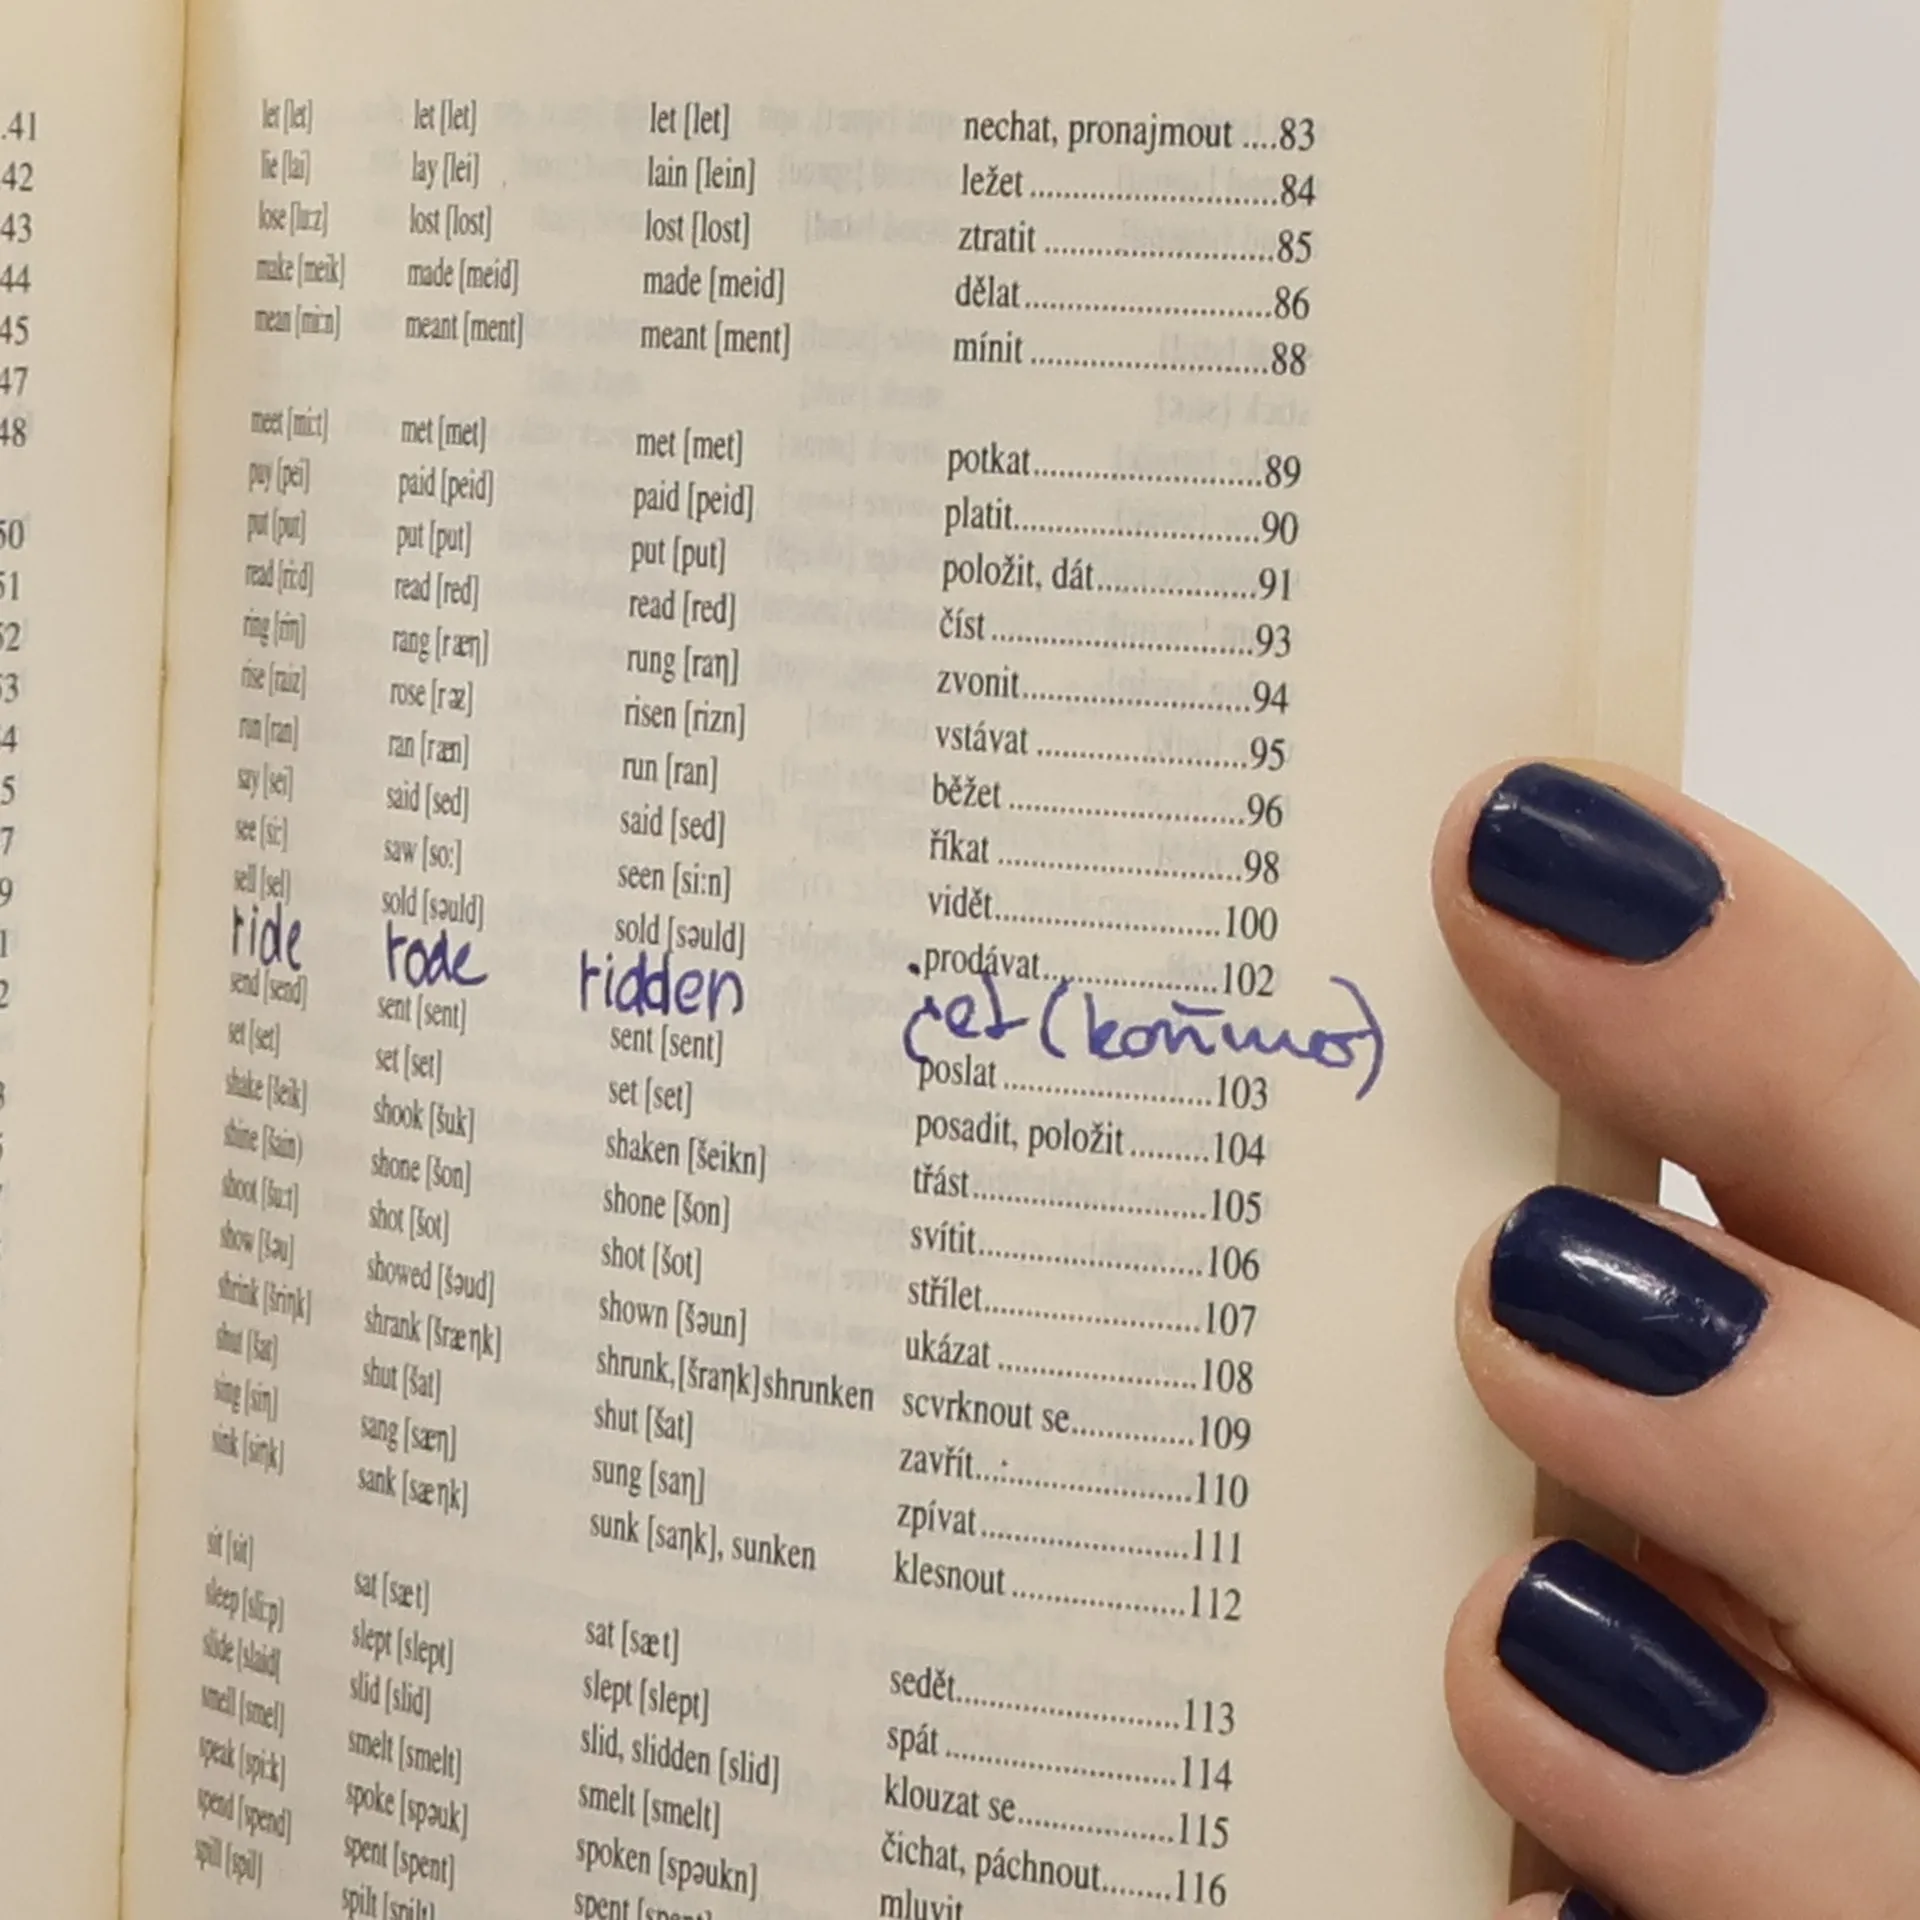 .41
42
43
44
45
47
48
50
51
52
let [let] let [let] let [let] nechat, pronajmout ....83
lie [lai] lay [lei] lain [lein] ležet ..............................84
lose [lu:z] lost [lost] lost [lost] ztratit ............................85
make [meik] made [meid] made [meid] dělat ..............................86
mean [mi:n] meant [ment] meant [ment] mínit ..............................88
meet [mi:t] met [met] met [met] potkat............................89
pay [pei] paid [peid] paid [peid] platit..............................90
put [put] put [put] put [put] položit, dát....................91
read [ri:d] read [red] read [red] číst .................................93
ring [riŋ] rang [ræŋ] rung [raŋ] zvonit............................94
rise [raiz] rose [rəz] risen [rizn] vstávat ..........................95
run [ran] ran [ræn] run [ran] běžet .............................96
say [sei] said [sed] said [sed] říkat ...............................98
see [si:] saw [so:] seen [si:n] vidět............................100
sell [sel] sold [səuld] sold [səuld] prodávat......................102
ride rode ridden jet (koňmo)
send [send] sent [sent] sent [sent] poslat ..........................103
set [set] set [set] set [set] posadit, položit ..........104
shake [šeik] shook [šuk] shaken [šeikn] třást.............................105
shine [šain) shone [šon] shone [šon] svítit............................106
shoot [šu:t] shot [šot] shot [šot] střílet...........................107
show [šəu] showed [šəud] shown [šəun] ukázat ........................108
shrink [šriŋk] shrank [šræŋk] shrunk, [šraŋk] shrunken scvrknout se...............109
shut [šat] shut [šat] shut [šat] zavřít...........................110
sing [siŋ] sang [sæŋ] sung [saŋ] zpívat..........................111
sink [siŋk] sank [sæŋk] sunk [saŋk], sunken klesnout .....................112
sit [sit] sat [sæt] sat [sæt] sedět............................113
sleep [sli:p] slept [slept] slept [slept] spát .............................114
slide [slaid[ slid [slid] slid, slidden [slid] klouzat se....................115
smell [smel] smelt [smelt] smelt [smelt] čichat, páchnout........116
speak [spi:k] spoke [spəuk] spoken [spəukn] mluvit
spend [spend] spent [spent] spent
spill [spil] spilt [spilt]